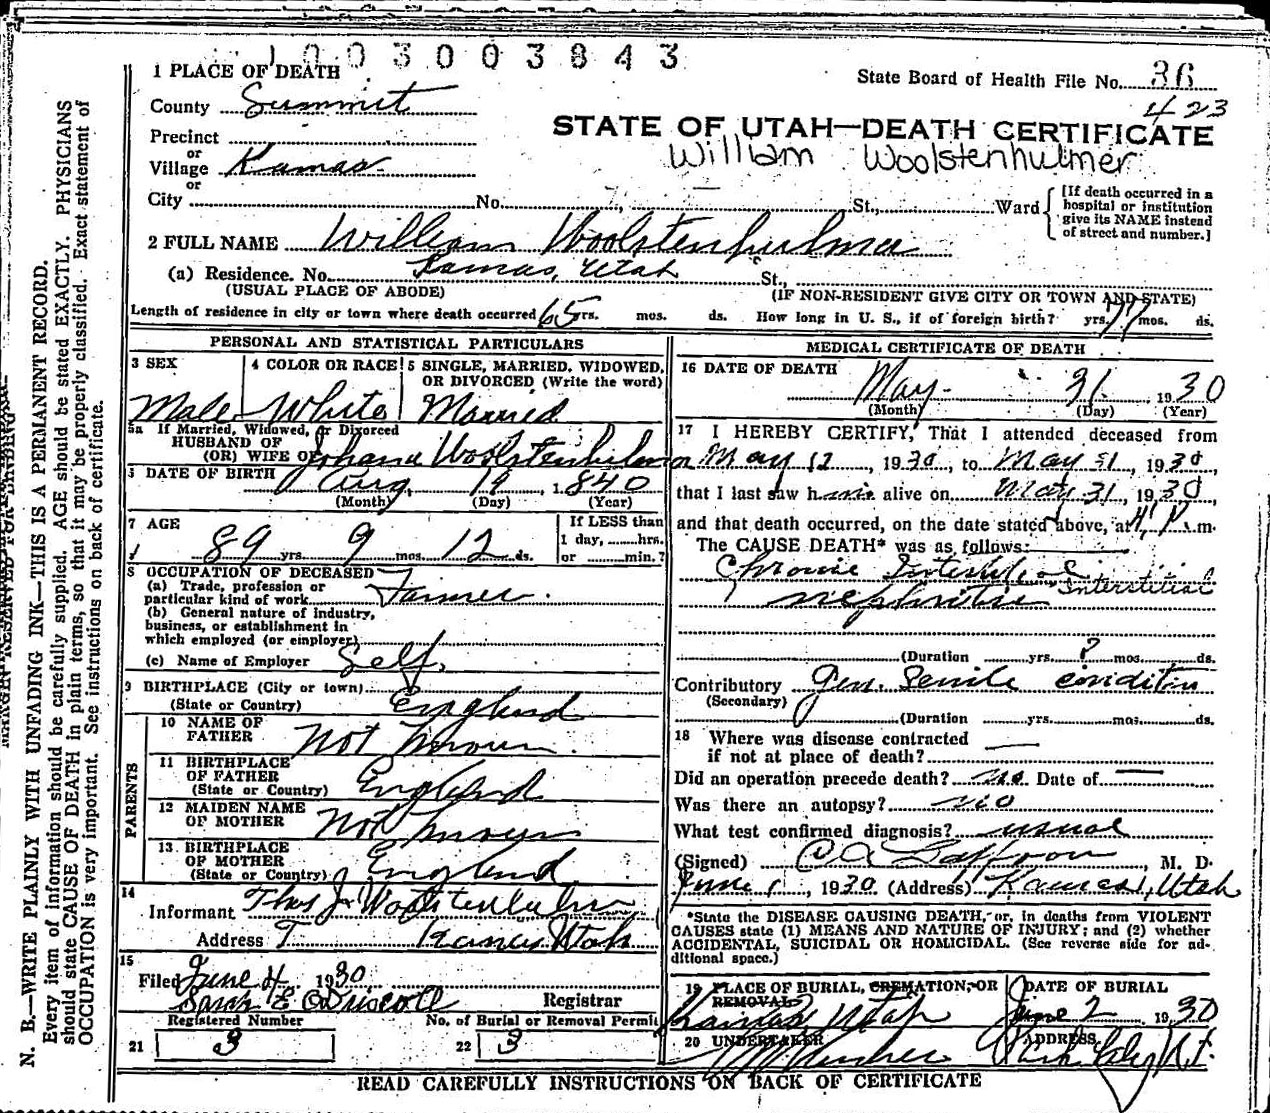 1003003843
1 PLACE OF DEATH
State Board of Health File No. 36
423
County Summit
STATE OF UTAH—DEATH CERTIFICATE
William Woolstenhulmer
Precinct
or
Village Kamas
or
City No. St., Ward
[If death occurred in a
hospital or institution
give its NAME instead
of street and number.]
2 FULL NAME William Woolstenhulmer
(a) Residence. No. Kamas, Utah St.,
(USUAL PLACE OF ABODE) (IF NON-RESIDENT GIVE CITY OR TOWN AND STATE)
Length of residence in city or town where death occurred 65 yrs. mos. ds. How long in U. S., if of foreign birth? yrs. 77 mos. ds.
PERSONAL AND STATISTICAL PARTICULARS
3 SEX
Male
4 COLOR OR RACE
White
5 SINGLE, MARRIED, WIDOWED,
OR DIVORCED (Write the word)
Married
5a If Married, Widowed, or Divorced
HUSBAND OF
(OR) WIFE OF Johana Woolstenhulmer
6 DATE OF BIRTH Aug 19 1840
(Month) (Day) (Year)
7 AGE
89 yrs. 9 mos. 12 ds.
If LESS than
1 day, hrs.
or min.?
8 OCCUPATION OF DECEASED
(a) Trade, profession or
particular kind of work Farmer
(b) General nature of industry,
business, or establishment in
which employed (or employer)
(c) Name of Employer Self
9 BIRTHPLACE (City or town)
(State or Country) England
PARENTS
10 NAME OF
FATHER Not known
11 BIRTHPLACE
OF FATHER
(State or Country) England
12 MAIDEN NAME
OF MOTHER Not known
13 BIRTHPLACE
OF MOTHER
(State or Country) England
14
Informant Thos J Woolstenhulm
Address Kamas, Utah
15
Filed June 4 1930
Sarah E O'Driscoll Registrar
Registered Number
21 3
No. of Burial or Removal Permit
22 3
MEDICAL CERTIFICATE OF DEATH
16 DATE OF DEATH
May 31, 1930
(Month) (Day) (Year)
17 I HEREBY CERTIFY, That I attended deceased from
May 12, 1930, to May 31, 1930
that I last saw him alive on May 31, 1930,
and that death occurred, on the date stated above, at P.m.
The CAUSE DEATH* was as follows:
Chronic Interstitial
Interstitial
nephritis
(Duration yrs. ? mos. ds.
Contributory Gen. Senile condition
(Secondary)
(Duration yrs. mos. ds.
18 Where was disease contracted
if not at place of death?
Did an operation precede death? no Date of
Was there an autopsy? no
What test confirmed diagnosis? usual
(Signed) C A , M. D.
June 1, 1930 (Address) Kamas, Utah
*State the DISEASE CAUSING DEATH, or, in deaths from VIOLENT
CAUSES state (1) MEANS AND NATURE OF INJURY; and (2) whether
ACCIDENTAL, SUICIDAL OR HOMICIDAL. (See reverse side for ad-
ditional space.)
19 PLACE OF BURIAL, CREMATION, OR
REMOVAL
Kamas, Utah
DATE OF BURIAL
June 2 1930
20 UNDERTAKER
ADDRESS
Park City Ut.
READ CAREFULLY INSTRUCTIONS ON BACK OF CERTIFICATE
N. B.—WRITE PLAINLY WITH UNFADING INK—THIS IS A PERMANENT RECORD.
Every item of information should be carefully supplied. AGE should be stated EXACTLY. PHYSICIANS
should state CAUSE OF DEATH in plain terms, so that it may be properly classified. Exact statement of
OCCUPATION is very important. See instructions on back of certificate.
MARGIN RESERVED FOR BINDING